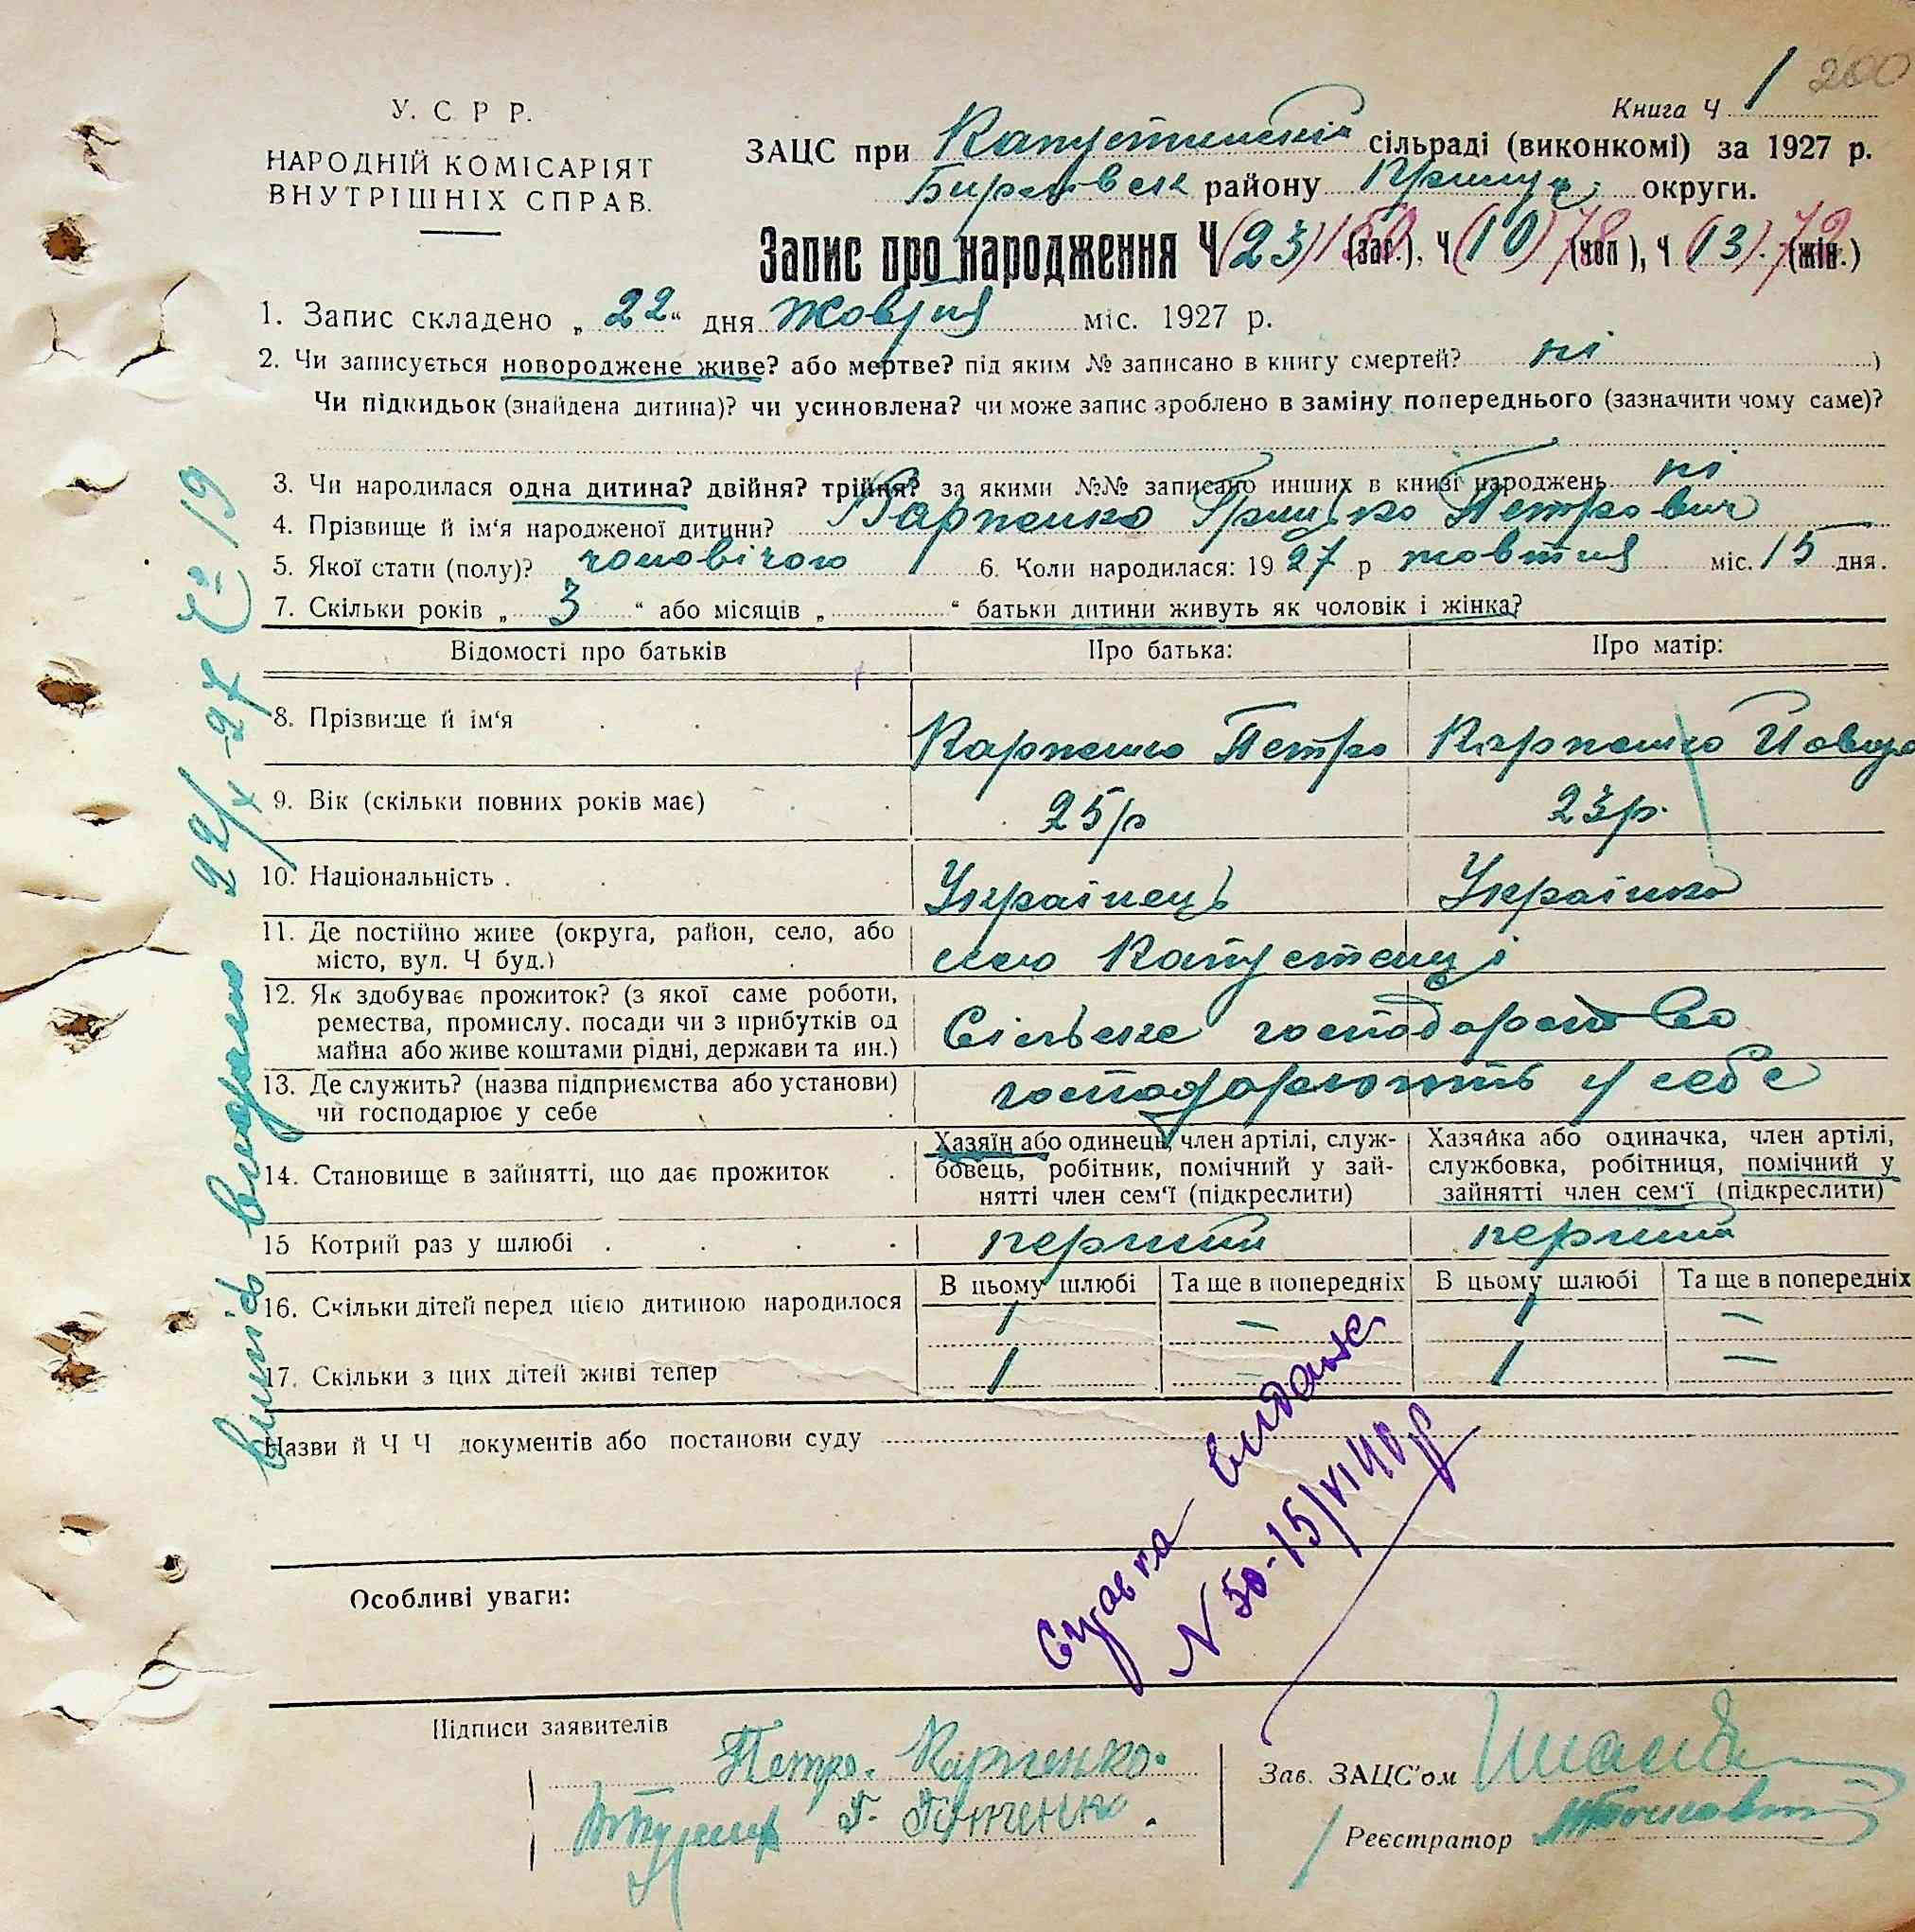 Книга Ч 1 200
У. С Р Р.
НАРОДНІЙ КОМІСАРІЯТ
ВНУТРІШНІХ СПРАВ.
ЗАЦС при Капустинській сільраді (виконкомі) за 1927 р.
району округи.
Запис про народження Ч (23) 150 (заг.), Ч (10) 78 (чол), Ч (13). 72 (жін.)
1. Запис складено „ 22 “ дня Жовтня міс. 1927 р.
2. Чи записується новороджене живе? або мертве? під яким № записано в книгу смертей? ні )
Чи підкидьок (знайдена дитина)? чи усиновлена? чи може запис зроблено в заміну попереднього (зазначити чому саме)?
3. Чи народилася одна дитина? двійня? трійня? за якими №№ записано инших в книзі народжень ні
4. Прізвище й ім‘я народженої дитини? Карпенко Грицько Петрович
5. Якої стати (полу)? чоловічого 6. Коли народилася: 1927 р жовтня міс. 15 дня.
7. Скільки років „ 3 “ або місяців „ “ батьки дитини живуть як чоловік і жінка?
Відомості про батьків Про батька: Про матір:
8. Прізвище й ім‘я Карпенко Петро Карпенко
9. Вік (скільки повних років має) 25р 23р.
10. Національність . Українець Українка
11. Де постійно живе (округа, район, село, або
місто, вул. Ч буд.) село Капустенці
12. Як здобуває прожиток? (з якої саме роботи,
ремества, промислу. посади чи з прибутків од
майна або живе коштами рідні, держави та ин.) Сільське господарство
13. Де служить? (назва підприємства або установи)
чи господарює у себе господарюють у себе
14. Становище в зайнятті, що дає прожиток
Хазяїн або одинець, член артілі, служ-
бовець, робітник, помічний у зай-
нятті член сем‘ї (підкреслити)
Хазяйка або одиначка, член артілі,
службовка, робітниця, помічний у
зайнятті член сем‘ї (підкреслити)
15 Котрий раз у шлюбі перший перший
В цьому шлюбі Та ще в попередніх В цьому шлюбі Та ще в попередніх
16. Скільки дітей перед цією дитиною народилося 1 — 1 —
17. Скільки з цих дітей живі тепер 1 — 1 —
Назви й Ч Ч документів або постанови суду
Особливі уваги:
видана
N 50-15/VI 40р
Підписи заявителів
Петро. Карпенко.
Зав. ЗАЦС'ом
Реєстратор
Витяг видано 22/X-27 19